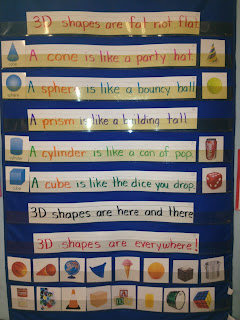 3D shapes are fat not flat
A cone is like a party hat.
A sphere is like a bouncy ball
sphere
A prism is like a building tall
A cylinder is like a can of pop.
A cube is like the dice you drop.
cube
3D shapes are here and there
3D shapes are everywhere!